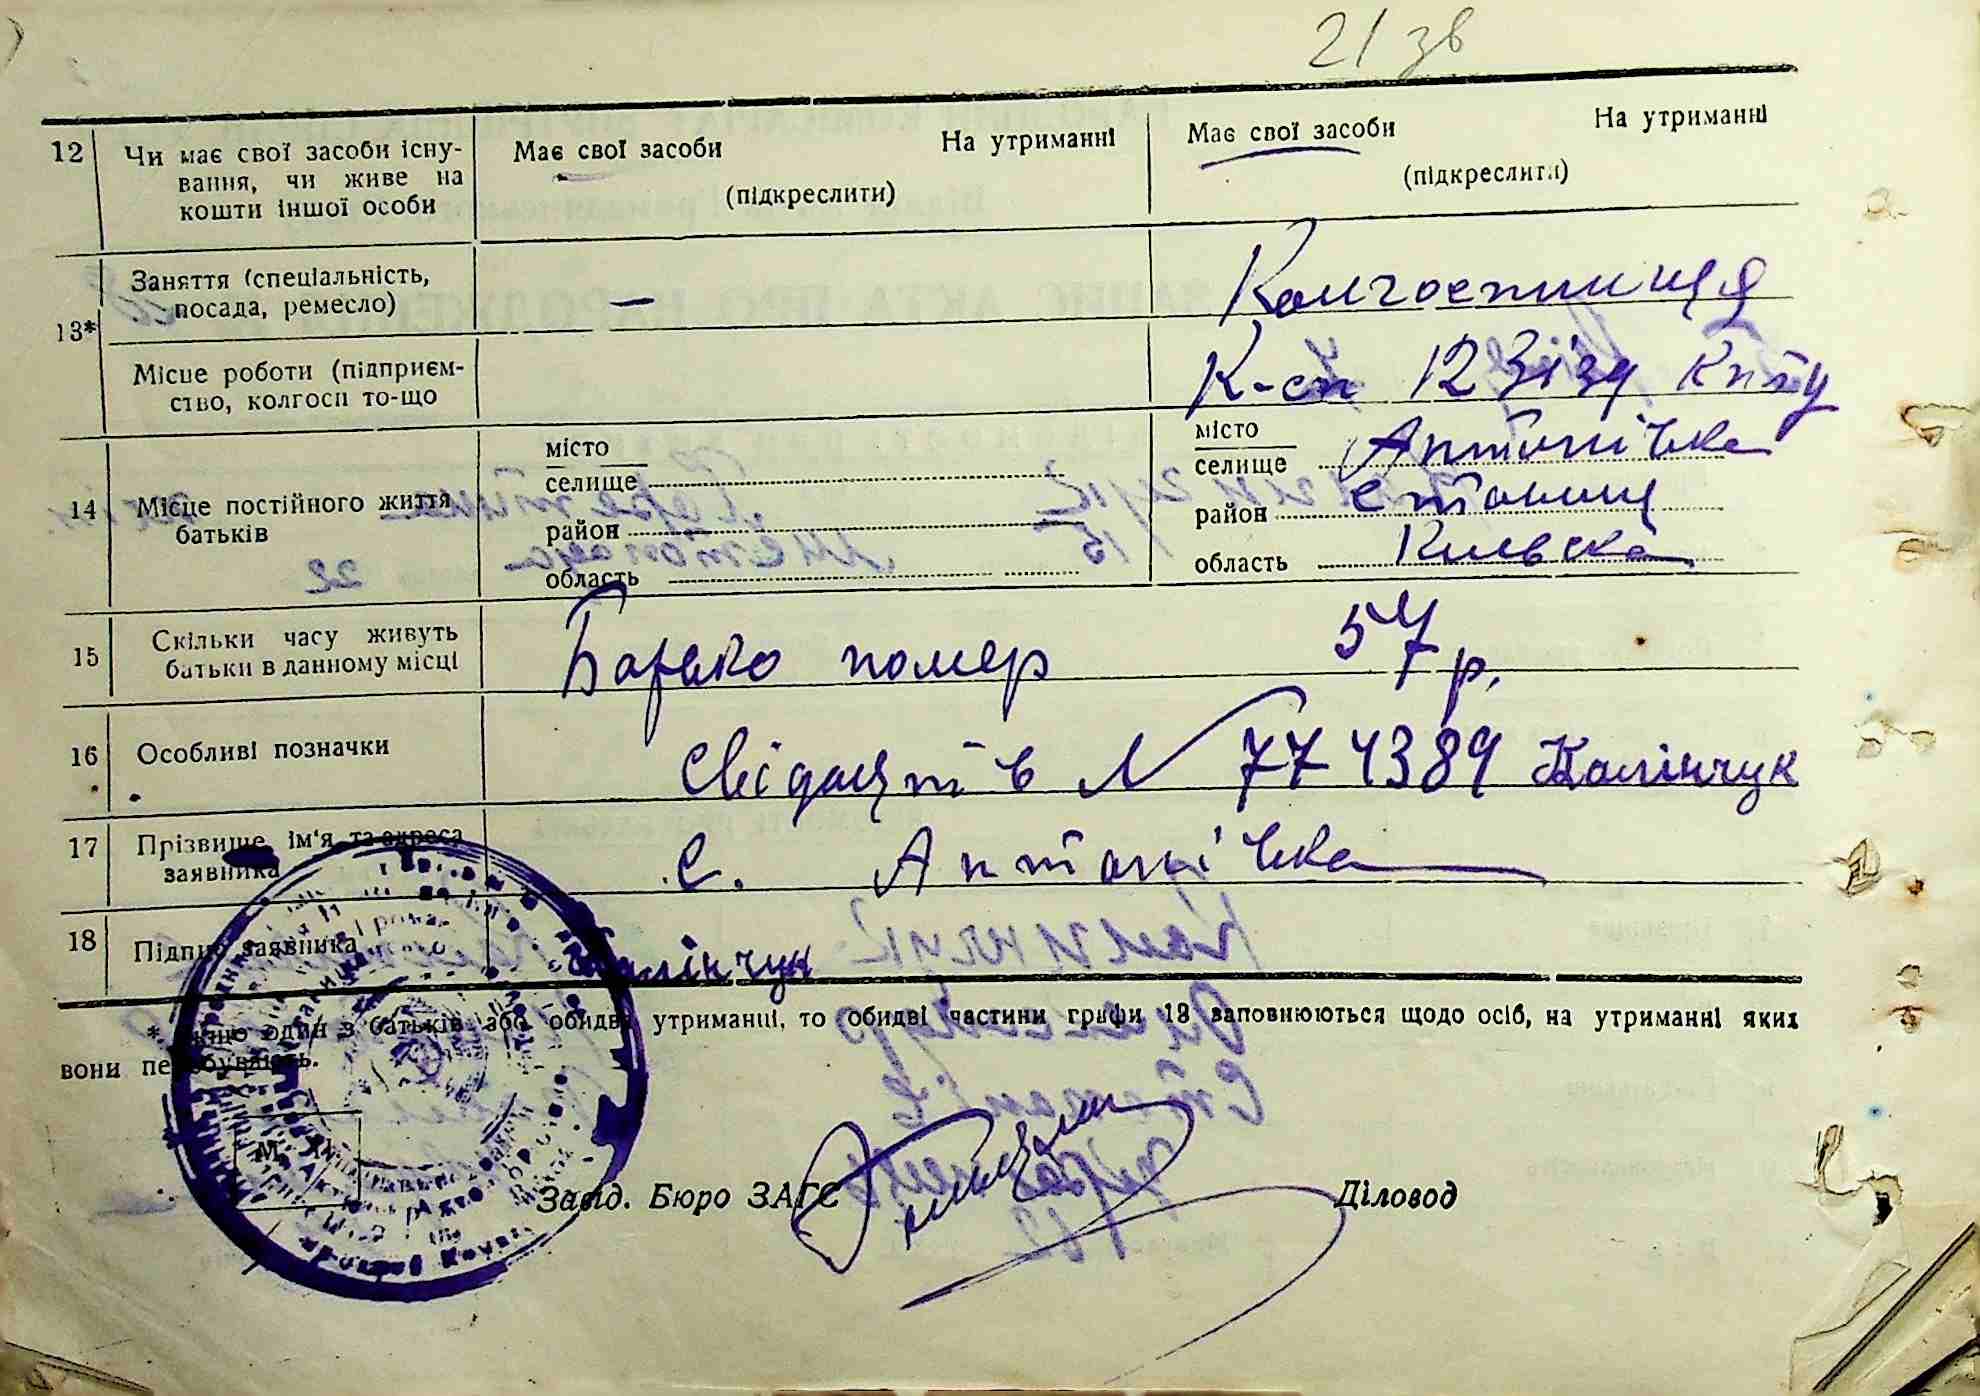 21 зв
12 Чи має свої засоби існу- Має свої засоби На утриманні Має свої засоби На утриманні
вання, чи живе на (підкреслити) (підкреслити)
кошти іншої особи
13* Заняття (спеціальність, — Колгоспниця
посада, ремесло)
Місце роботи (підприєм- К-сп 12 Зізду Кпбу
ство, колгосп то-що
14 Місце постійного життя батьків
місто
селище
район
область
місто
селище Антонівка
район Ставищ
область Київска
15 Скільки часу живуть Батько помер 57 р.
батьки в данному місці
16 Особливі позначки Свідоцтв N 774389 Калінчук
17 Прізвище ім'я та адреса с. Антонівка
заявника
18 Підпис заявника Калінчук
* Якщо один з батьків або обидва утриманці, то обидві частини графи 13 заповнюються щодо осіб, на утриманні яких
вони перебувають.
М.
Завід. Бюро ЗАГС Діловод